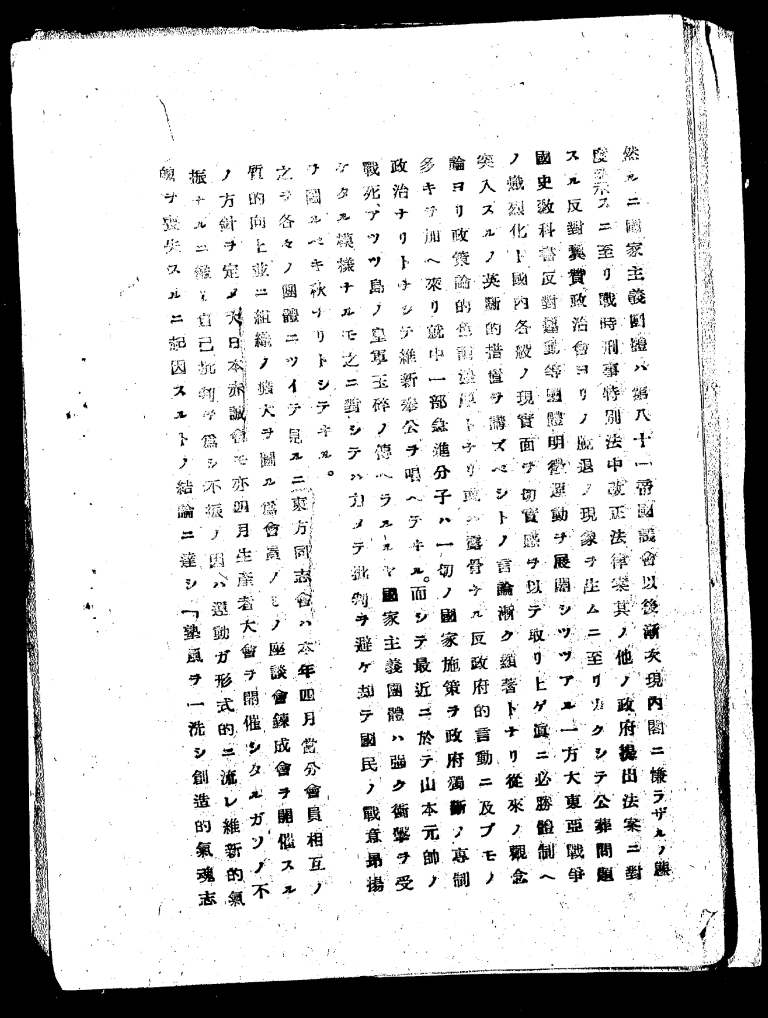 然ルニ國家主義團體ハ第八十一帝國議會以後漸次現内閣ニ慊ラザルノ態
度ヲ示スニ至リ戰時刑事特別法中改正法律案其ノ他ノ政府提出法案ニ對
スル反對翼賛政治會ヨリノ脱退ノ現象ヲ生ムニ至リカクシテ公葬問題
國史敎科書反對運動等國體明徴運動ヲ展開シツツアル一方大東亞戰爭
ノ熾烈化ト國内各般ノ現實面ヲ切實感ヲ以テ取リ上ゲ眞ニ必勝體制ヘ
突入スルノ英斷的措置ヲ講ズベシトノ言論漸ク顯著トナリ從來ノ觀念
論ヨリ政策論的色彩濃厚トナリ或ハ露骨ナル反政府的言動ニ及ブモノ
多キヲ加ヘ來リ就中一部急進分子ハ一切ノ國家施策ヲ政府獨斷ノ專制
政治ナリトナシテ維新奉公ヲ唱ヘテヰル。而シテ最近ニ於テ山本元帥ノ
戰死、アツツ島ノ皇軍玉碎ノ傳ヘラルルヤ國家主義團體ハ強ク衝擊ヲ受
ケタル模樣ナルモ之ニ對シテハ力メテ批判ヲ避ケ却テ國民ノ戰意昻揚
ヲ圖ルベキ秋ナリトシテヰル。
之ヲ各々ノ團體ニツイテ見ルニ東方同志會ハ本年四月當分會員相互ノ
質的向上並ニ組織ノ擴大ヲ圖ル爲會員ノミノ座談會鍊成會ヲ開催スル
ノ方針ヲ定メ大日本赤誠會モ亦四月生產者大會ヲ開催シタルガソノ不
振ナルニ鑑ミ自己批判ヲ爲シ不振ノ因ハ運動ガ形式的ニ流レ維新的氣
魄ヲ喪失スルニ起因スルトノ結論ニ達シ「塾風ヲ一洗シ創造的氣魂志